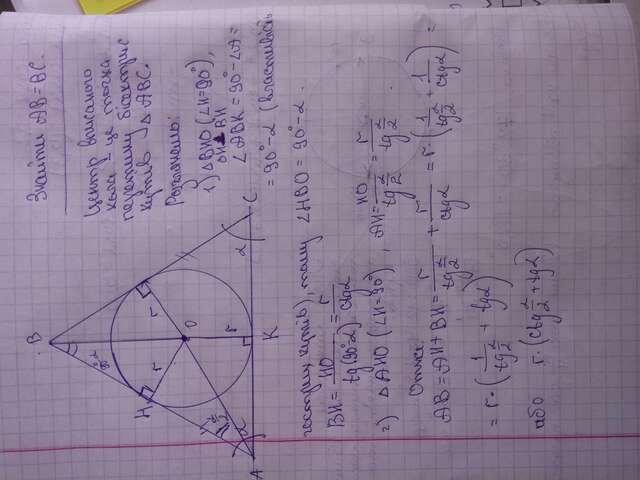 Знайти AB=BC.
Центр вписаного
кола – це точка
перетину бісектрис
кутів △ABC.
Розглянемо:
1) △BHO (∠H=90°),
OH⊥BH
∠ABK = 90°-∠A =
= 90°-α (властивість
гострих кутів), тому ∠HBO = 90°-α.
BH = HO/tg(90°-α) = r/ctgα
2) △AHO (∠H=90°), AH = HO/tg α/2 = r/tg α/2
Отже:
AB = AH + BH = r/tg α/2 + r/ctgα = r·(1/tg α/2 + 1/ctgα) =
= r·(1/tg α/2 + tgα)
або r·(ctg α/2 + tgα)
B
H
r
r
O
r
A
α
K
α
C